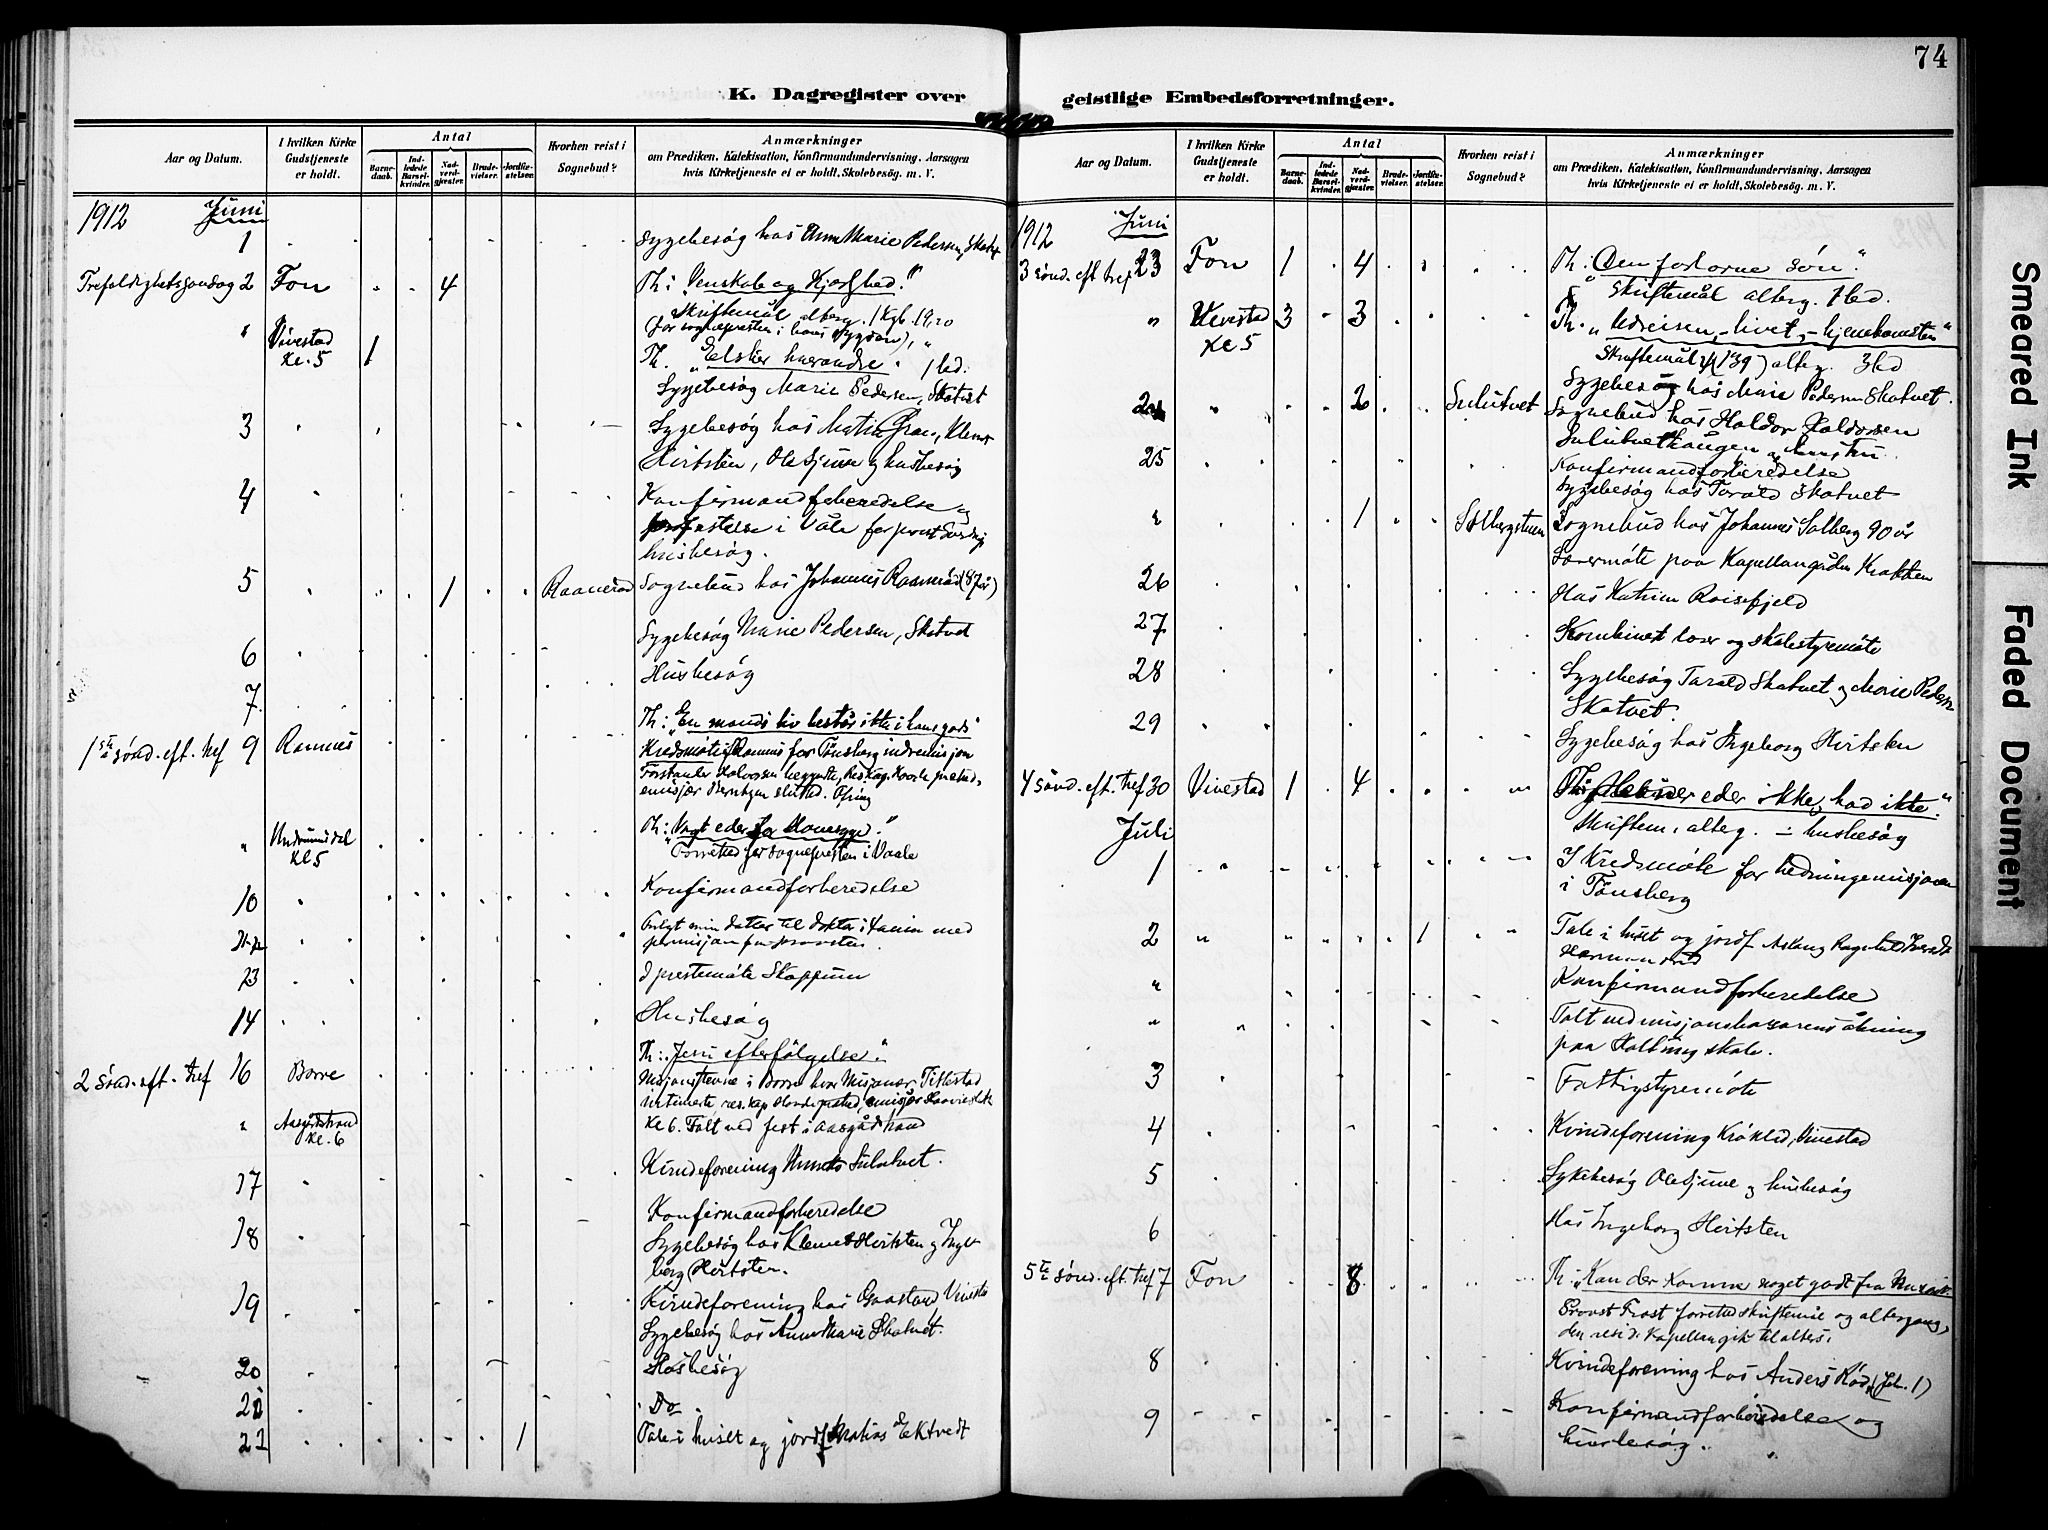 74
K. Dagregister over
geistlige Embedsforretninger.
Aar og Datum.
I hvilken Kirke Gudstjeneste er holdt.
Antal
Barnedaab.
Indledede Barselkvinder.
Nadverdgjæster.
Brudevielser.
Jordfæstelser.
Hvorhen reist i Sognebud?
Anmærkninger
om Prædiken, Katekisation, Konfirmandundervisning, Aarsagen
hvis Kirketjeneste ei er holdt, Skolebesøg. m. V.
1912 Juni
1 Sygebesøg hos Anna Marie Pedersen, Skatvet
Trefoldighetssøndag 2 Fon 4 Th: "Venskab og Kjærlighed."
Skriftemål alberg. 1 Kgb. 19,20
(for sognepresten i hans sygdom),
" Vivestad Kl. 5 1 Th. "Elsker hverandre" 1 bd.
Sygebesøg Marie Pedersen, Skatvet
3 Sygebesøg hos Gran, Klemet
Hirtsten, Ole Sjuve og husbesøg
4 Konfirmandforberedelse og
jordfæstelse i Våle for provst
husbesøg.
5 1 Raanerød Sognebud hos Johannes Raanerød (87 år)
Sygebesøg Marie Pedersen, Skatvet
6 Husbesøg
7
1ste sönd. eft. tref 9 Ramnes Th: "En mands liv består ikke i hans gods"
Kredsmöte i Ramnes for Tönsberg indremisjon
Forstander Halvorsen begyndte, Res. kap.
emisjær slutted. Ofring
" Undrumsdal Kl 5 Th: "Vogt eder for Havesyge."
Forretted for sognepresten i Vaale
10 Konfirmandforberedelse
Fulgt min datter til doktor i med
permisjon fra provsten.
13 I prestemöte Skoppum
14 Husbesøg
2 Sönd. eft. tref 16 Borre Th: "Jesu efterfölgelse."
Misjonsstevne i Borre hvor Misjonær Tillestad
Aasgårdstrand Kl. 6 Kl 6. Talt ved fest i Aasgårdstrand
17 Kvindeforening Sulutvet.
Konfirmandforberedelse
18 Sygebesøg hos Klemet Hirtsten og Inge-
borg Hirtsten.
19 Kvindeforening hos Gaastand Vivestad
Sygebesøg hos Anne Marie Skatvet.
20 Husbesøg
21 Do
22 1 Tale i huset og jordf Matias Ektvedt
Aar og Datum.
I hvilken Kirke Gudstjeneste er holdt.
Antal
Barnedaab.
Indledede Barselkvinder.
Nadverdgjæster.
Brudevielser.
Jordfæstelser.
Hvorhen reist i Sognebud?
Anmærkninger
om Prædiken, Katekisation, Konfirmandundervisning, Aarsagen
hvis Kirketjeneste ei er holdt, Skolebesøg. m. V.
1912 Juni
3 sönd. eft. tref 23 Fon 1 4 Th: "Den fortorne sön."
Skriftemål alberg. 1 bd.
" Vivestad Kl 5 3 3 Th. "Udreisen, - livet, - hjemkomsten"
Skriftemål (139) alterg. 3 bd
Sygebesøg hos Marie Pedersen Skatvet.
24 2 Sulutvet Sognebud hos Haldor Haldorsen
Sulutvethaugen og hustru.
25 Konfirmandforberedelse
Sygebesøg hos Torald Skatvet
" 1 Solbergstuen Sognebud hos Johannes Solberg 90 år
Lovermöte paa Kapellangården Krakken
26 Hos Katrine Roisefjeld
27 Kombinert og skolestyremöte
28 Sygebesøg Torald Skatvet og Marie Pedersen
Skatvet.
29 Sygebesøg hos Ingeborg Hirtsten
4 Sönd. eft. tref 30 Vivestad 1 4 Th: eder ikke, had ikke."
Skriftem. alterg. - husbesøg
Juli
1 I Kredsmöte for hedningemisjonen
i Tönsberg
2 1 Tale i huset og jordf Aslaug Ragnhild
" Konfirmandforberedelse
" Talt ved misjonsbasarens åbning
paa skole.
3 Fattigstyremöte
4 Kvindeforening Kröklid, Vivestad
5 Sykebesøg Ole Sjuve og husbesøg
6 Hos Ingeborg Hirtsten
5te sönd. eft. tref 7 Fon 8 Th: "Kan der komme noget godt fra Nazaret.
Provst Frost forretted skriftemål og altergang,
den resid. Kapellan gik til alters.
8 Kvindeforening hos Anders Röd (Joh. 1)
9 Konfirmandforberedelse og
husbesøg.
Smeared Ink
Faded Document